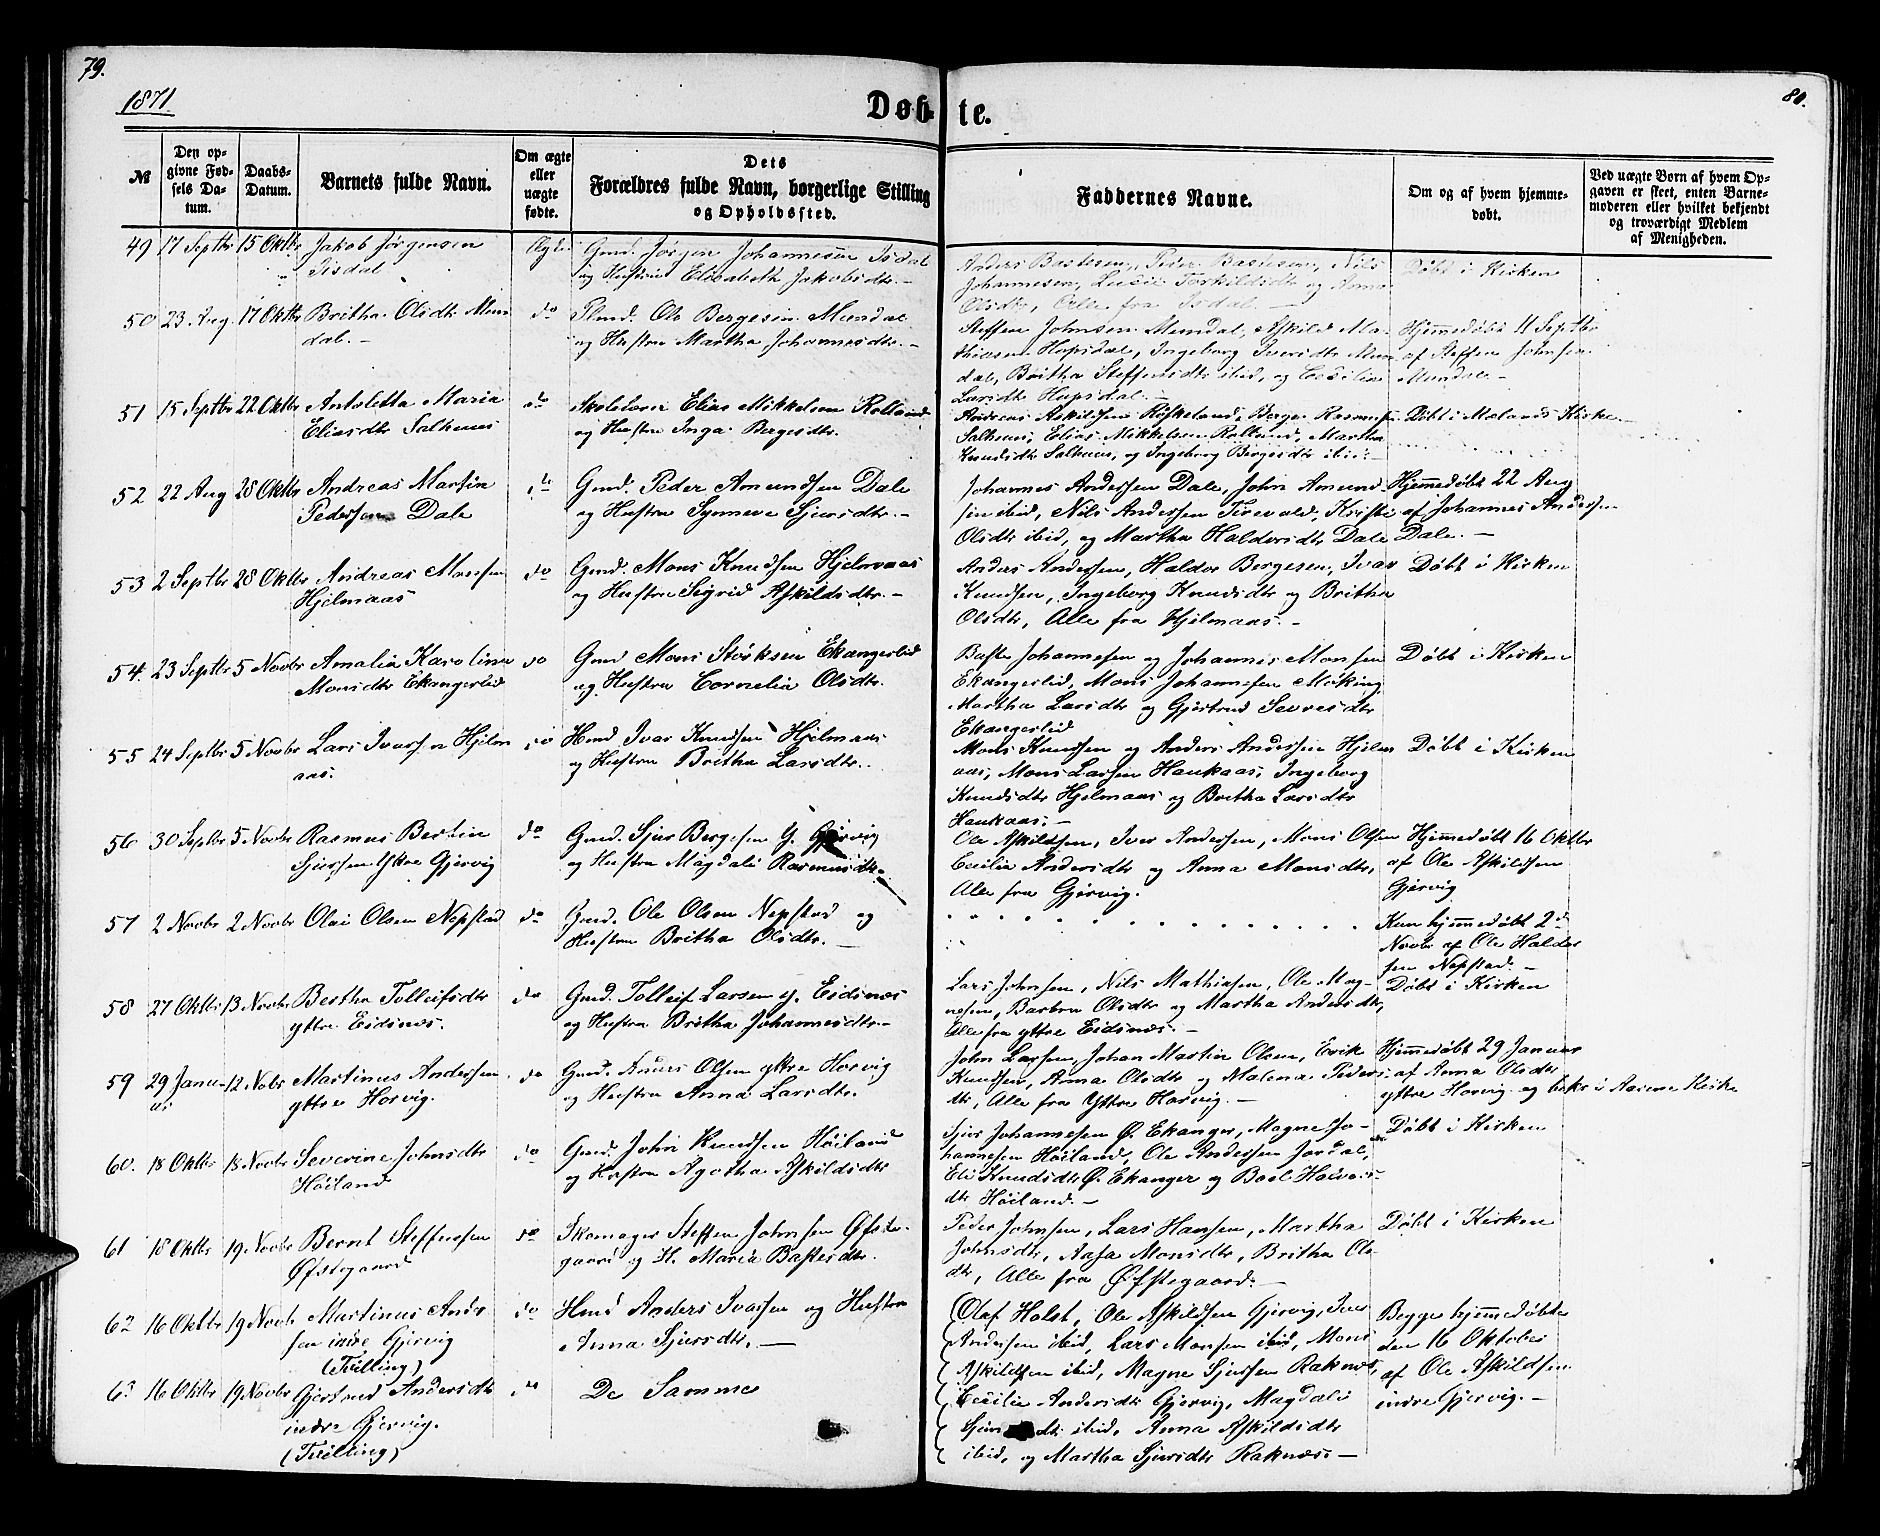 79.
80.
1871.
Døbte.
№
Den opgivne Fødsels Datum.
Daabs-Datum.
Barnets fulde Navn.
Om ægte eller uægte fødte.
Dets Forældres fulde Navn, borgerlige Stilling og Opholdssted.
Faddernes Navne.
Om og af hvem hjemmedøbt.
Ved uægte Børn af hvem Opgaven er skeet, enten Barnemoderen eller hvilket bekjendt og troværdigt Medlem af Menigheden.
49 17 Septbr 15 Oktbr Jakob Jørgensen Isdal Ægte Gmd. Jørgen Johannesen Isdal
og Hustru Elisabeth Jakobsdtr. —
Anders Bastesen, Peder Rasmussen, Nils
Johannesen, Lucie Torkildsdtr og Anna
Olsdtr, Alle fra Isdal. —
Døbt i Kirken
50 23 Aug. 17 Oktbr Britha Olsdtr Mundal. — do Plmd. Ole Bergesen Mundal
og Hustru Martha Johannesdtr. —
Steffen Johnsen Mundal, Askild Mathiasen Hopsdal, Ingeborg Iversdtr Mundal, Britha Steffensdtr ibid, og Cecilia
Larsdtr Hopsdal. —
Hjemmedøbt 11 Septbr
af Steffen Johnsen
Mundal. —
51 15 Septbr 22 Oktbr Antoletta Maria
Eliasdtr Salhuus do Skolelærer Elias Mikkelsen Rolland
og Hustru Inga Bergesdtr.
Andreas Askildsen Høskeland, Berge Rasmussen
Salhuus, Elias Mikkelsen Rolland, Martha
Knudsdtr Salhuus, og Ingeborg Bergesdtr ibid. —
Døbt i Mælands Kirke
52 22 Aug 28 Oktbr Andreas Martin
Pedersen Dale do Gmd. Peder Amundsen Dale
og Hustru Synneve Sjursdtr. —
Johannes Andersen Dale, John Amundsen ibid, Nils Andersen Tirevold, Kristi
Olsdtr ibid, og Martha Haldorsdtr Dale
Hjemmedøbt 22 Aug
af Johannes Andersen
Dale. —
53 2 Septbr 28 Oktbr Andreas Monsen
Hjelmaas do Gmd. Mons Knudsen Hjelmaas
og Hustru Sigrid Askildsdtr. —
Anders Andersen, Haldor Bergesen, Ivar
Knudsen, Ingeborg Knudsdtr og Britha
Olsdtr, Alle fra Hjelmaas. —
Døbt i Kirken
54. 23 Septbr 5 Novbr Amalia Karolina
Monsdtr Ekangerlid do Gmd Mons Størksen Ekangerlid
og Hustru Cornelia Olsdtr.
Baste Johannesen og Johannes Monsen
Ekangerlid, Mons Johannesen Meking
Martha Larsdtr og Gjertrud Seviesdtr
Ekangerlid
Døbt i Kirken
55 24 Septbr 5 Novbr Lars Ivarsen Hjelmaas. do Hmd Ivar Knudsen Hjelmaas
og Hustru Britha Larsdtr.
Mons Knudsen og Anders Andersen Hjelmaas, Mons Larsen Haukaas, Ingeborg
Knudsdtr Hjelmaas og Britha Larsdtr
Haukaas. —
Døbt i Kirken
56 30 Septbr 5 Novbr Rasmus Bertin
Sjursen Ytre Gjervig do Gmd. Sjur Bergesen Y. Gjervig
og Hustru Magdali Rasmusdtr.
Ole Askildsen, Iver Andersen, Mons Olsen
Cecilia Andersdtr og Anna Monsdtr,
Alle fra Gjervig.
Hjemmedøbt 16 Oktbr
af Ole Askildsen
Gjervig
57 2 Novbr 2 Novbr Olai Olsen Nepstad do Gmd. Ole Olsen Nepstad og
Hustru Britha Olsdtr. —
Kun hjemmedøbt 2d
Novbr af Ole Haldorsen Nepstad. —
58 27 Oktbr 13 Novbr Bertha Tolleifsdtr
yttre Eidsnes. do Gmd. Tolleif Larsen y. Eidsnes
og Hustru Britha Johannesdtr. —
Lars Johnsen, Nils Mathiasen, Ole Magnesen, Barbro Olsdtr og Martha Andersdtr,
Alle fra yttre Eidsnes. —
Døbt i Kirken
59 29 Januar 12 Nobr Martinus Andersen
yttre Horvig. do Gmd. Anders Olsen yttre Horvig
og Hustru Anna Larsdtr.
John Larsen, Johan Martin Olsen, Erik
Knudsen, Anna Olsdtr og Malena Pedersdtr, Alle fra Yttre Horvig. —
Hjemmedøbt 29 Januar
af Anna Olsdtr
yttre Horvig og bekr i Aasene Kirke
60. 18 Oktbr 18 Novbr Severine Johnsdtr
Høiland do Gmd. John Knudsen Høiland
og Hustru Agatha Askildsdtr
Sjur Johannesen Ø. Ekanger, Magne Johannesen Høiland, Ole Andersen Jordal,
Eli Knudsdtr Ø. Ekanger og Boel Halvorsdtr Høiland. —
Døbt i Kirken
61 18 Oktbr 19 Novbr Bernt Steffensen
Øfstegaard do Skomager Steffen Johnsen Øfstegaard og H. Maria Bastesdtr.
Peder Johnsen, Lars Hansen, Martha
Johnsdtr, Aasa Monsdtr, Britha Olsdtr, Alle fra Øfstegaard. —
Døbt i Kirken
62 16 Oktbr 19 Novb Martinus Andersen indre Gjervig
(Tvilling) do Hmd Anders Ivarsen og Hustru
Anna Sjursdtr. —
63 16 Oktbr 19 Novbr Gjertrud Andersdtr
indre Gjervig.
(Tvilling) do De Samme
Olaf Holst, Ole Askildsen Gjervig, Iver
Andersen ibid, Lars Monsen ibid, Mons
Askildsen ibid, Magne Sjursen Raknes,
Cecilia Andersdtr Gjervig, Magdali
Sjursdtr ibid, Anna Askildsdtr
ibid, og Martha Sjursdtr Raknes. —
Begge hjemmedøbte
den 16 Oktober
af Ole Askildsen
indre Gjervig. —